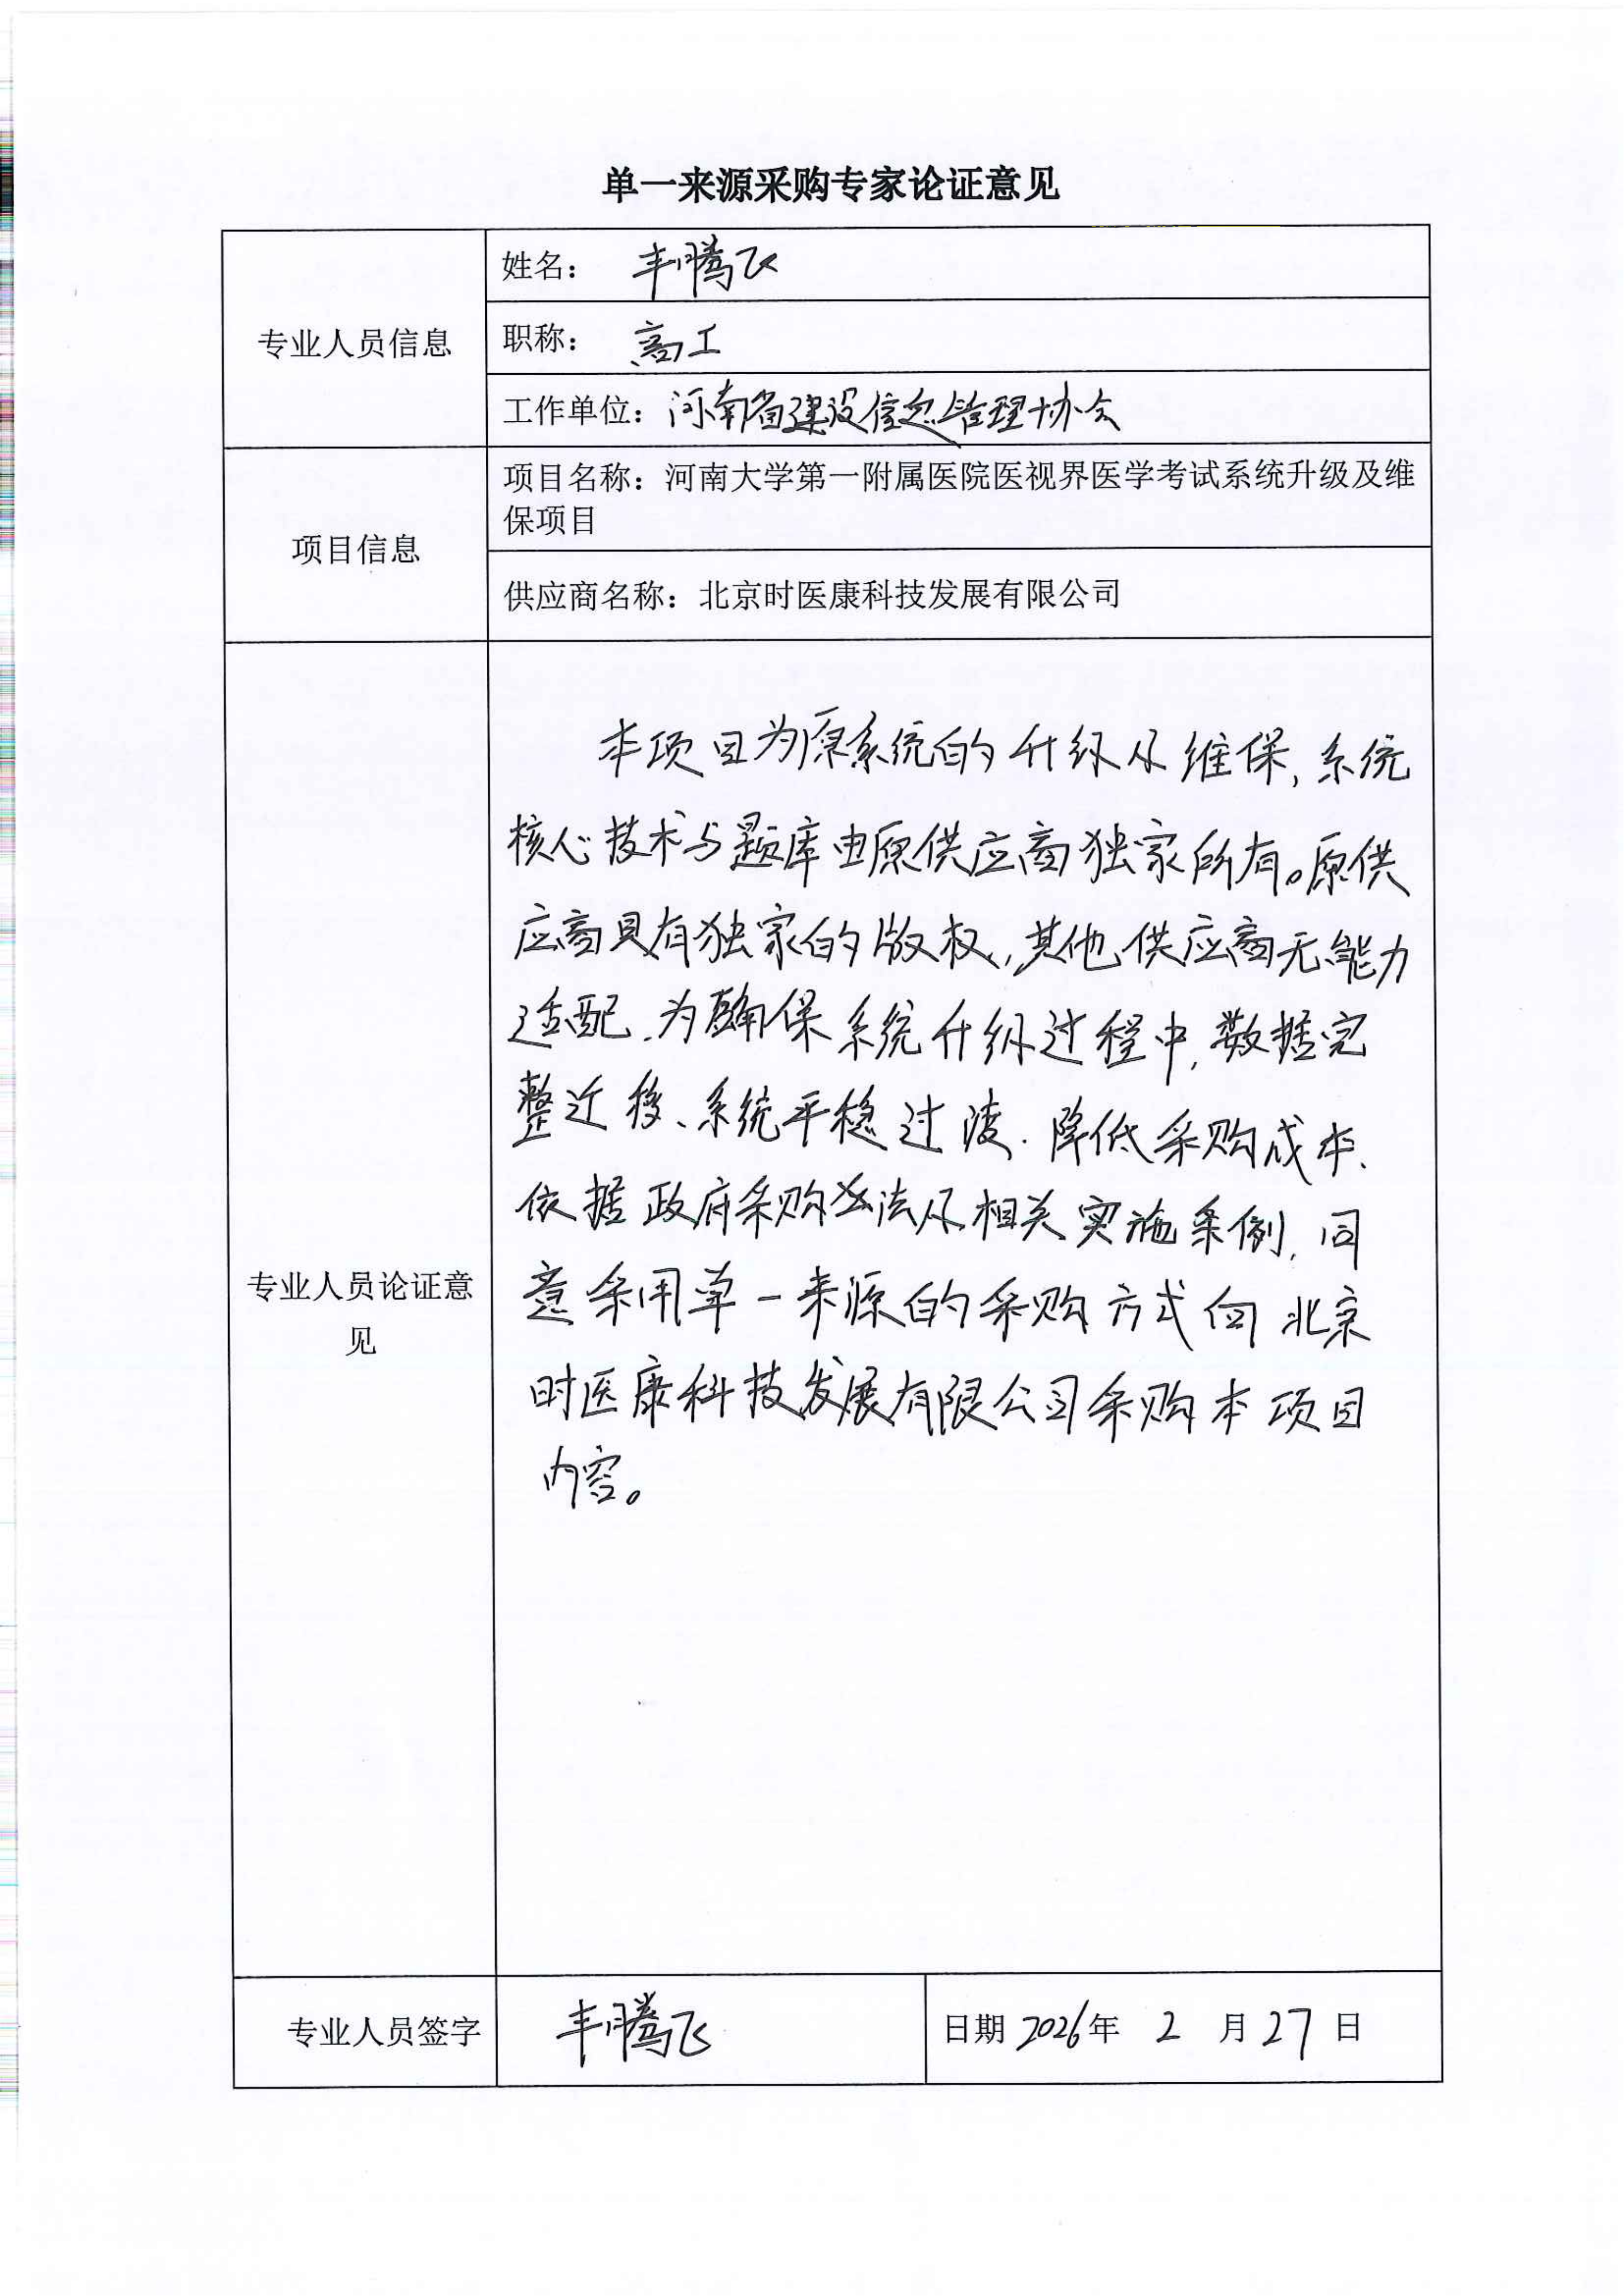 单一来源采购专家论证意见
专业人员信息
姓名： 丰腾飞
职称： 高工
工作单位：河南省建设信息管理协会
项目信息
项目名称：河南大学第一附属医院医视界医学考试系统升级及维
保项目
供应商名称：北京时医康科技发展有限公司
专业人员论证意
见
本项目为原系统的升级及维保,系统
核心技术与题库由原供应商独家所有。原供
应商具有独家的版权,其他供应商无能力
适配.为确保系统升级过程中,数据完
整迁移、系统平稳过渡.降低采购成本、
依据政府采购法及相关实施条例,同
意采用单一来源的采购方式向北京
时医康科技发展有限公司采购本项目
内容。
专业人员签字
丰腾飞
日期 2026年 2 月 27 日